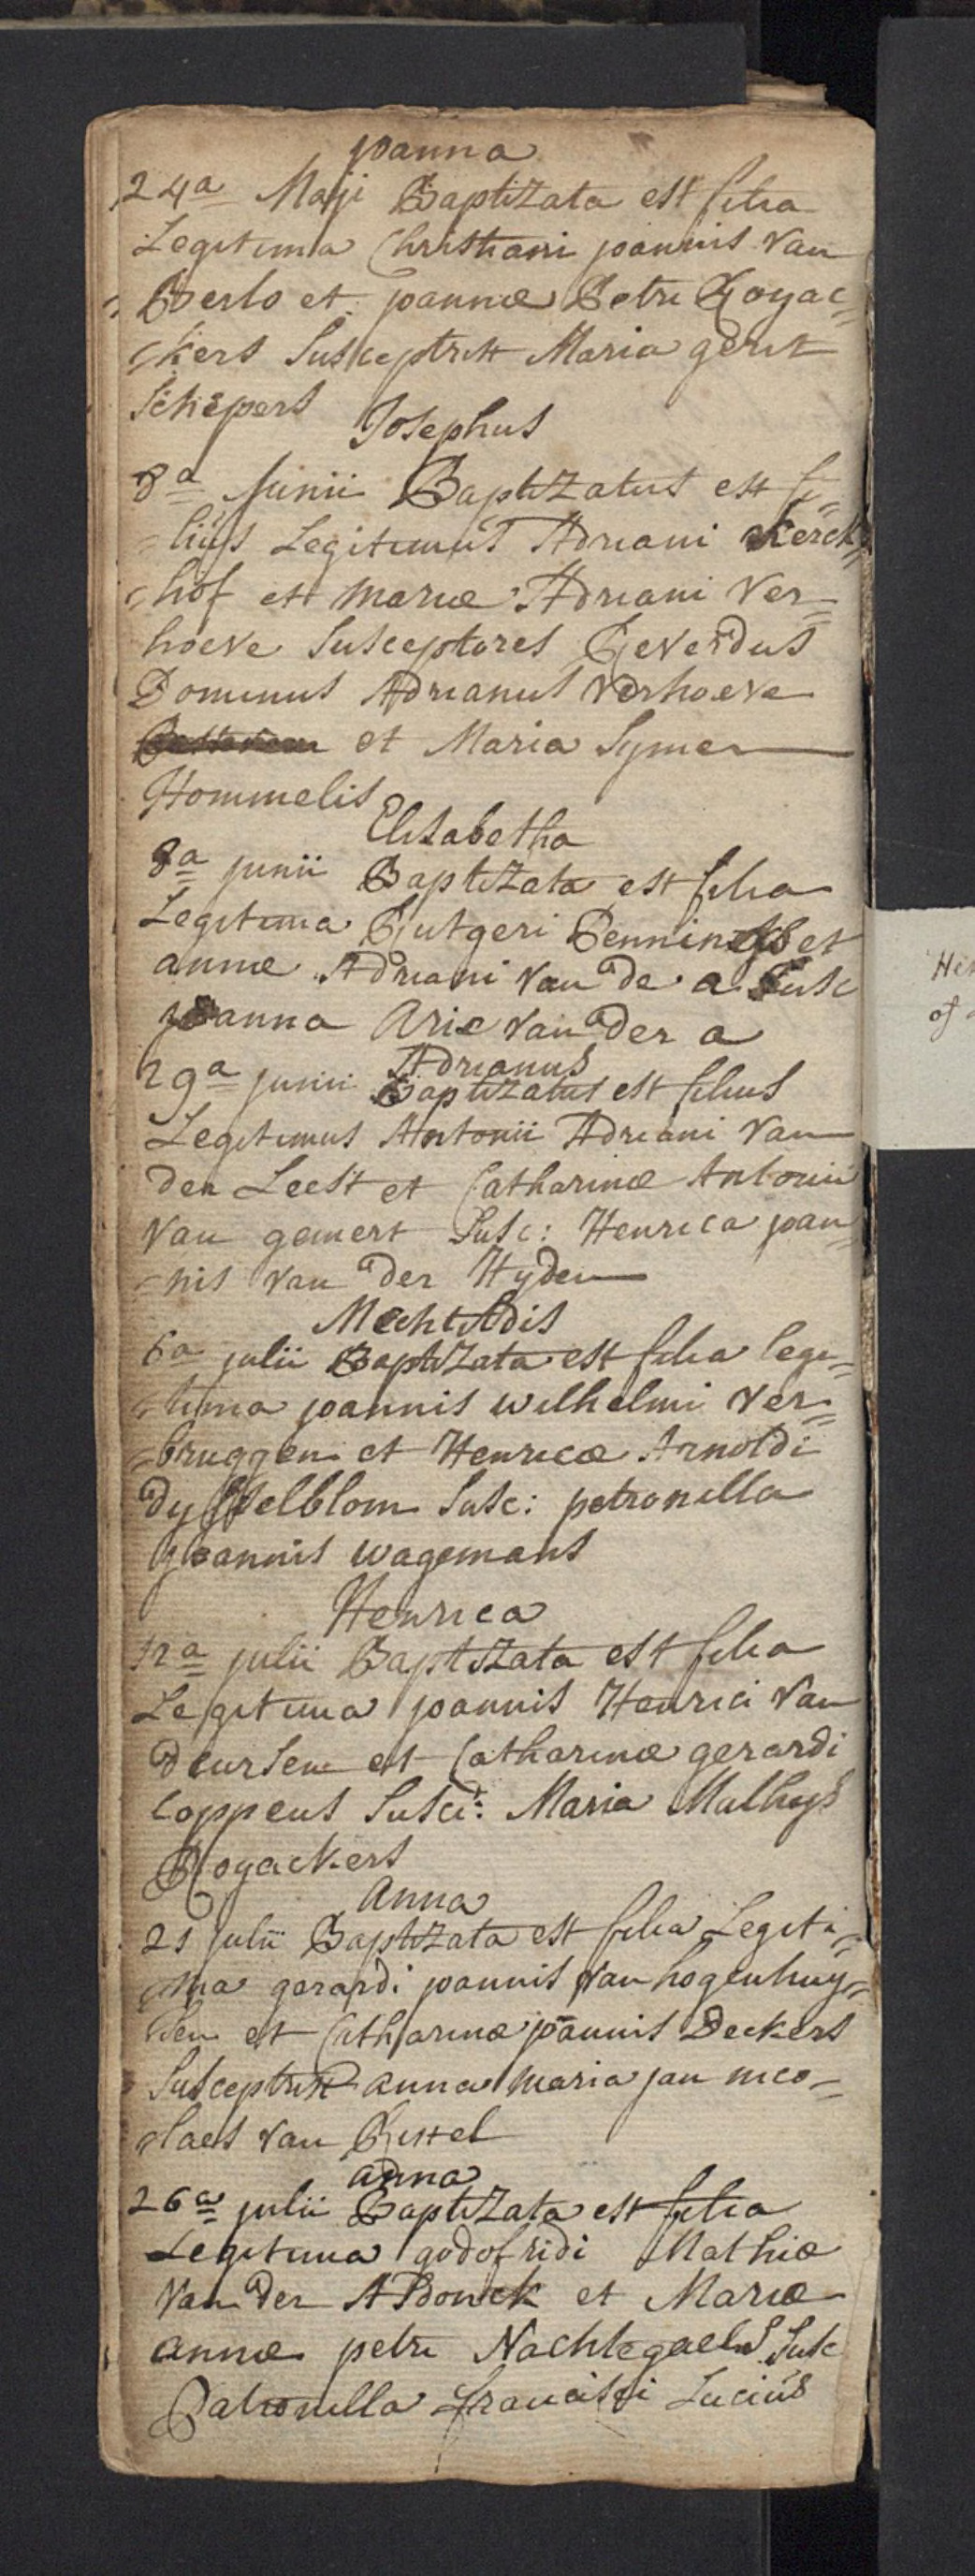 Joanna
24a Maji Baptizata est filia
Legitima Christiani joannis van
Berlo et joannæ Petri Royac=
=kers Susceptrix Maria gerit
Schepers
Josephus
8a Junii Baptizatus est fi=
=lius Legitimus Adriani Kerck=
=hof et mariæ Adriani Ver=
hoeve Susceptores Reverdus
Dominus Adrianus Verhoeve
et Maria Symen
Hommelis
Elisabetha
8a junii Baptizata est filia
Legitima Rutgeri Pennincks et
annæ Adriani Van de a Susc
joanna Arie van der a
Adrianus
29a junii Baptizatus est filius
Legitimus Antonii Adriani Van
den Leest et Catharinæ Antonii
Van gemert Susc: Henrica joan=
=nis van der Hyden
Mechtildis
6a julii Baptizata est filia legi=
=tima joannis wilhelmi Ver=
=bruggen et Henricæ Arnoldi
Dysselblom Susc: petronilla
joannis wagemans
Henrica
12a julii Baptizata est filia
Legitima joannis Henrici Van
deursen et Catharinæ gerardi
Coppens Susc: Maria Mathys
Royackers
Anna
21 julii Baptizata est filia Legiti=
=ma gerardi joannis van hogenhuy=
sen et Catharinæ joannis Deckers
Susceptrix anna maria jan nico=
=laes van Gestel
anna
26a julii Baptizata est filia
Legitima godofridi Mathiæ
Van der A Donck et Mariæ
annæ petri Nachtegaels Susc
Petronilla Francisci Lucius
Hen
of